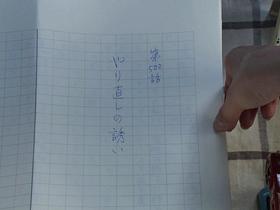 第502話
やり直しの誘い